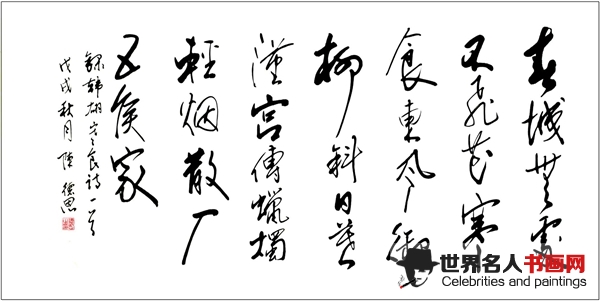 春城無處
不飛花寒
食東風御
柳斜日暮
漢宮傳蠟燭
輕烟散入
五侯家
錄韓翃寒食詩一首
戊戌秋月 陸德思
世界名人书画网
Celebrities and paintings